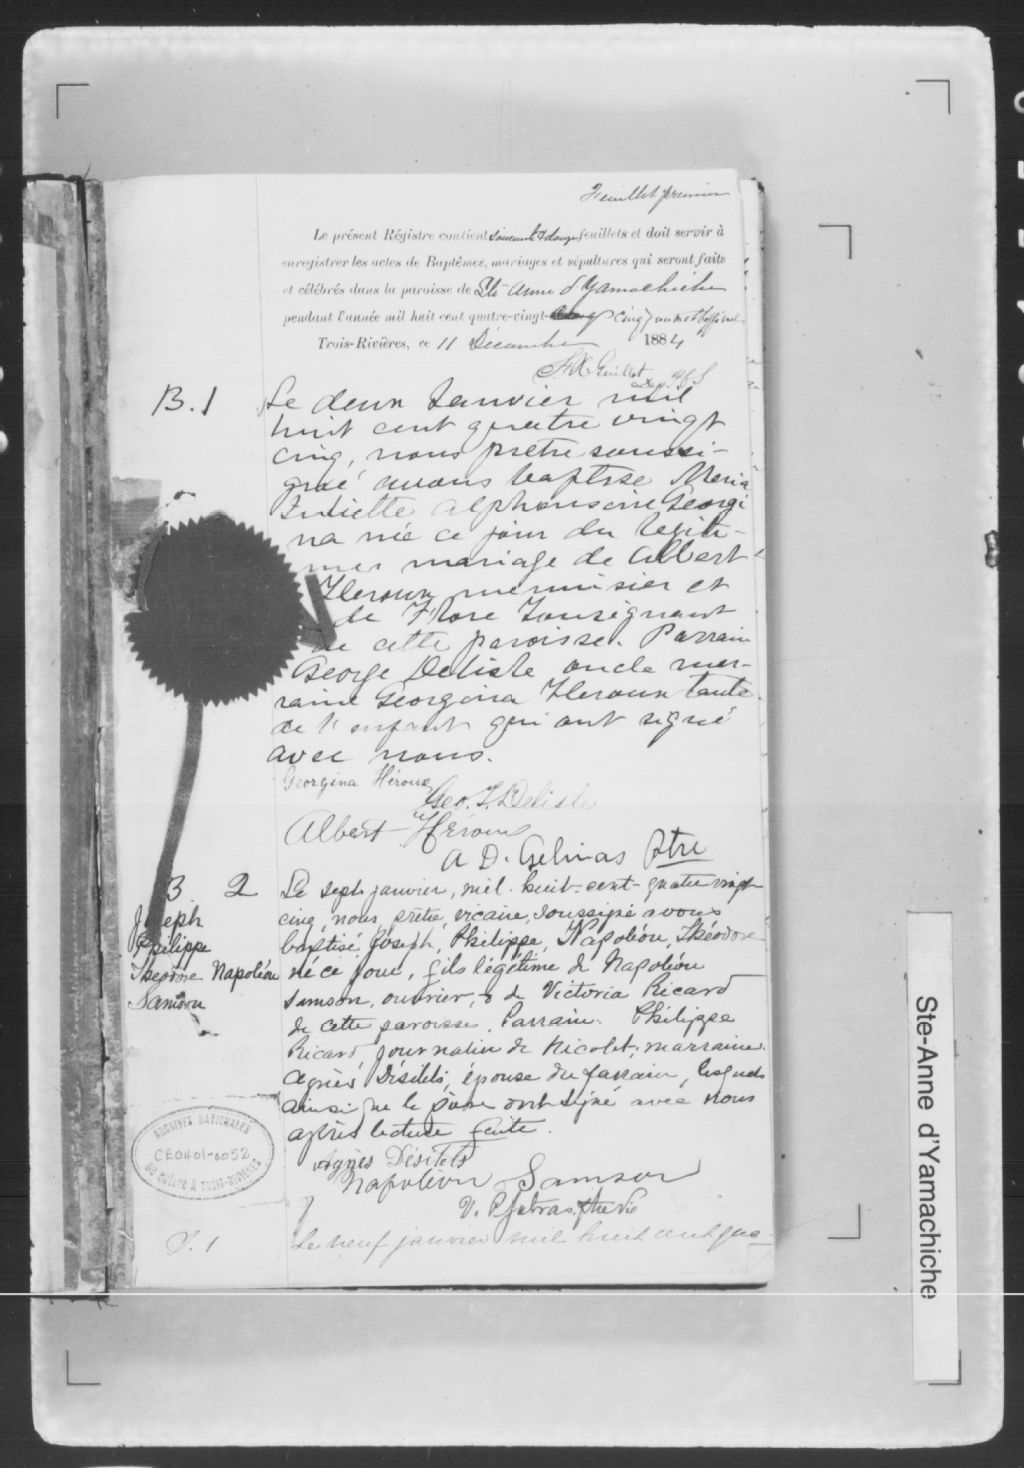 Feuillet premier
Le présent Régistre contient soixante & douze feuillets et doit servir à
enregistrer les actes de Baptêmes, mariages et sépultures qui seront faits
et célébrés dans la paroisse de Ste Anne d'Yamachiche
pendant l'année mil huit cent quatre-vingt- cinq
Trois-Rivières, ce 11 Décembre 1884
Guillet
Dep P C S
B. 1
Le deux Janvier mil
huit cent quatre vingt
cinq, nous prêtre soussi-
gné avons baptise Maria
Juliette Alphonsine Georgi
na née ce jour du legiti-
me mariage de Albert
Heroux menuisier et
de Flore Tousignant
de cette paroisse. Parrain
George Delisle oncle mar-
raine Georgina Heroux tante
de l'enfant qui ont signé
avec nous.
Georgina Héroux
Geo. Delisle
Albert Héroux
A D. Gelinas Ptre
B. 2
Joseph
Philippe
Theodore Napoléon
Samson
Le sept janvier, mil-huit-cent-quatre vingt
cinq, nous, prêtre, vicaire, soussigné avons
baptisé Joseph, Philippe, Napoléon, Théodore
né ce jour, fils légitime de Napoléon
Samson, ouvrier, & de Victoria Ricard
de cette paroisse. Parrain: Philippe
Ricard, journalier de Nicolet; marraine
Agnès Désilets, épouse du parrain, lesquels
ainsi que le père ont signé avec nous
après lecture faite.
Agnès Désilets
Napoléon Samson
V. P. Jutras, ptre Vic
ARCHIVES NATIONALES
CE0401-0052
DU QUÉBEC À TROIS-RIVIÈRES
S. 1
Le neuf janvier mil huit cent qua-
Ste-Anne d'Yamachiche